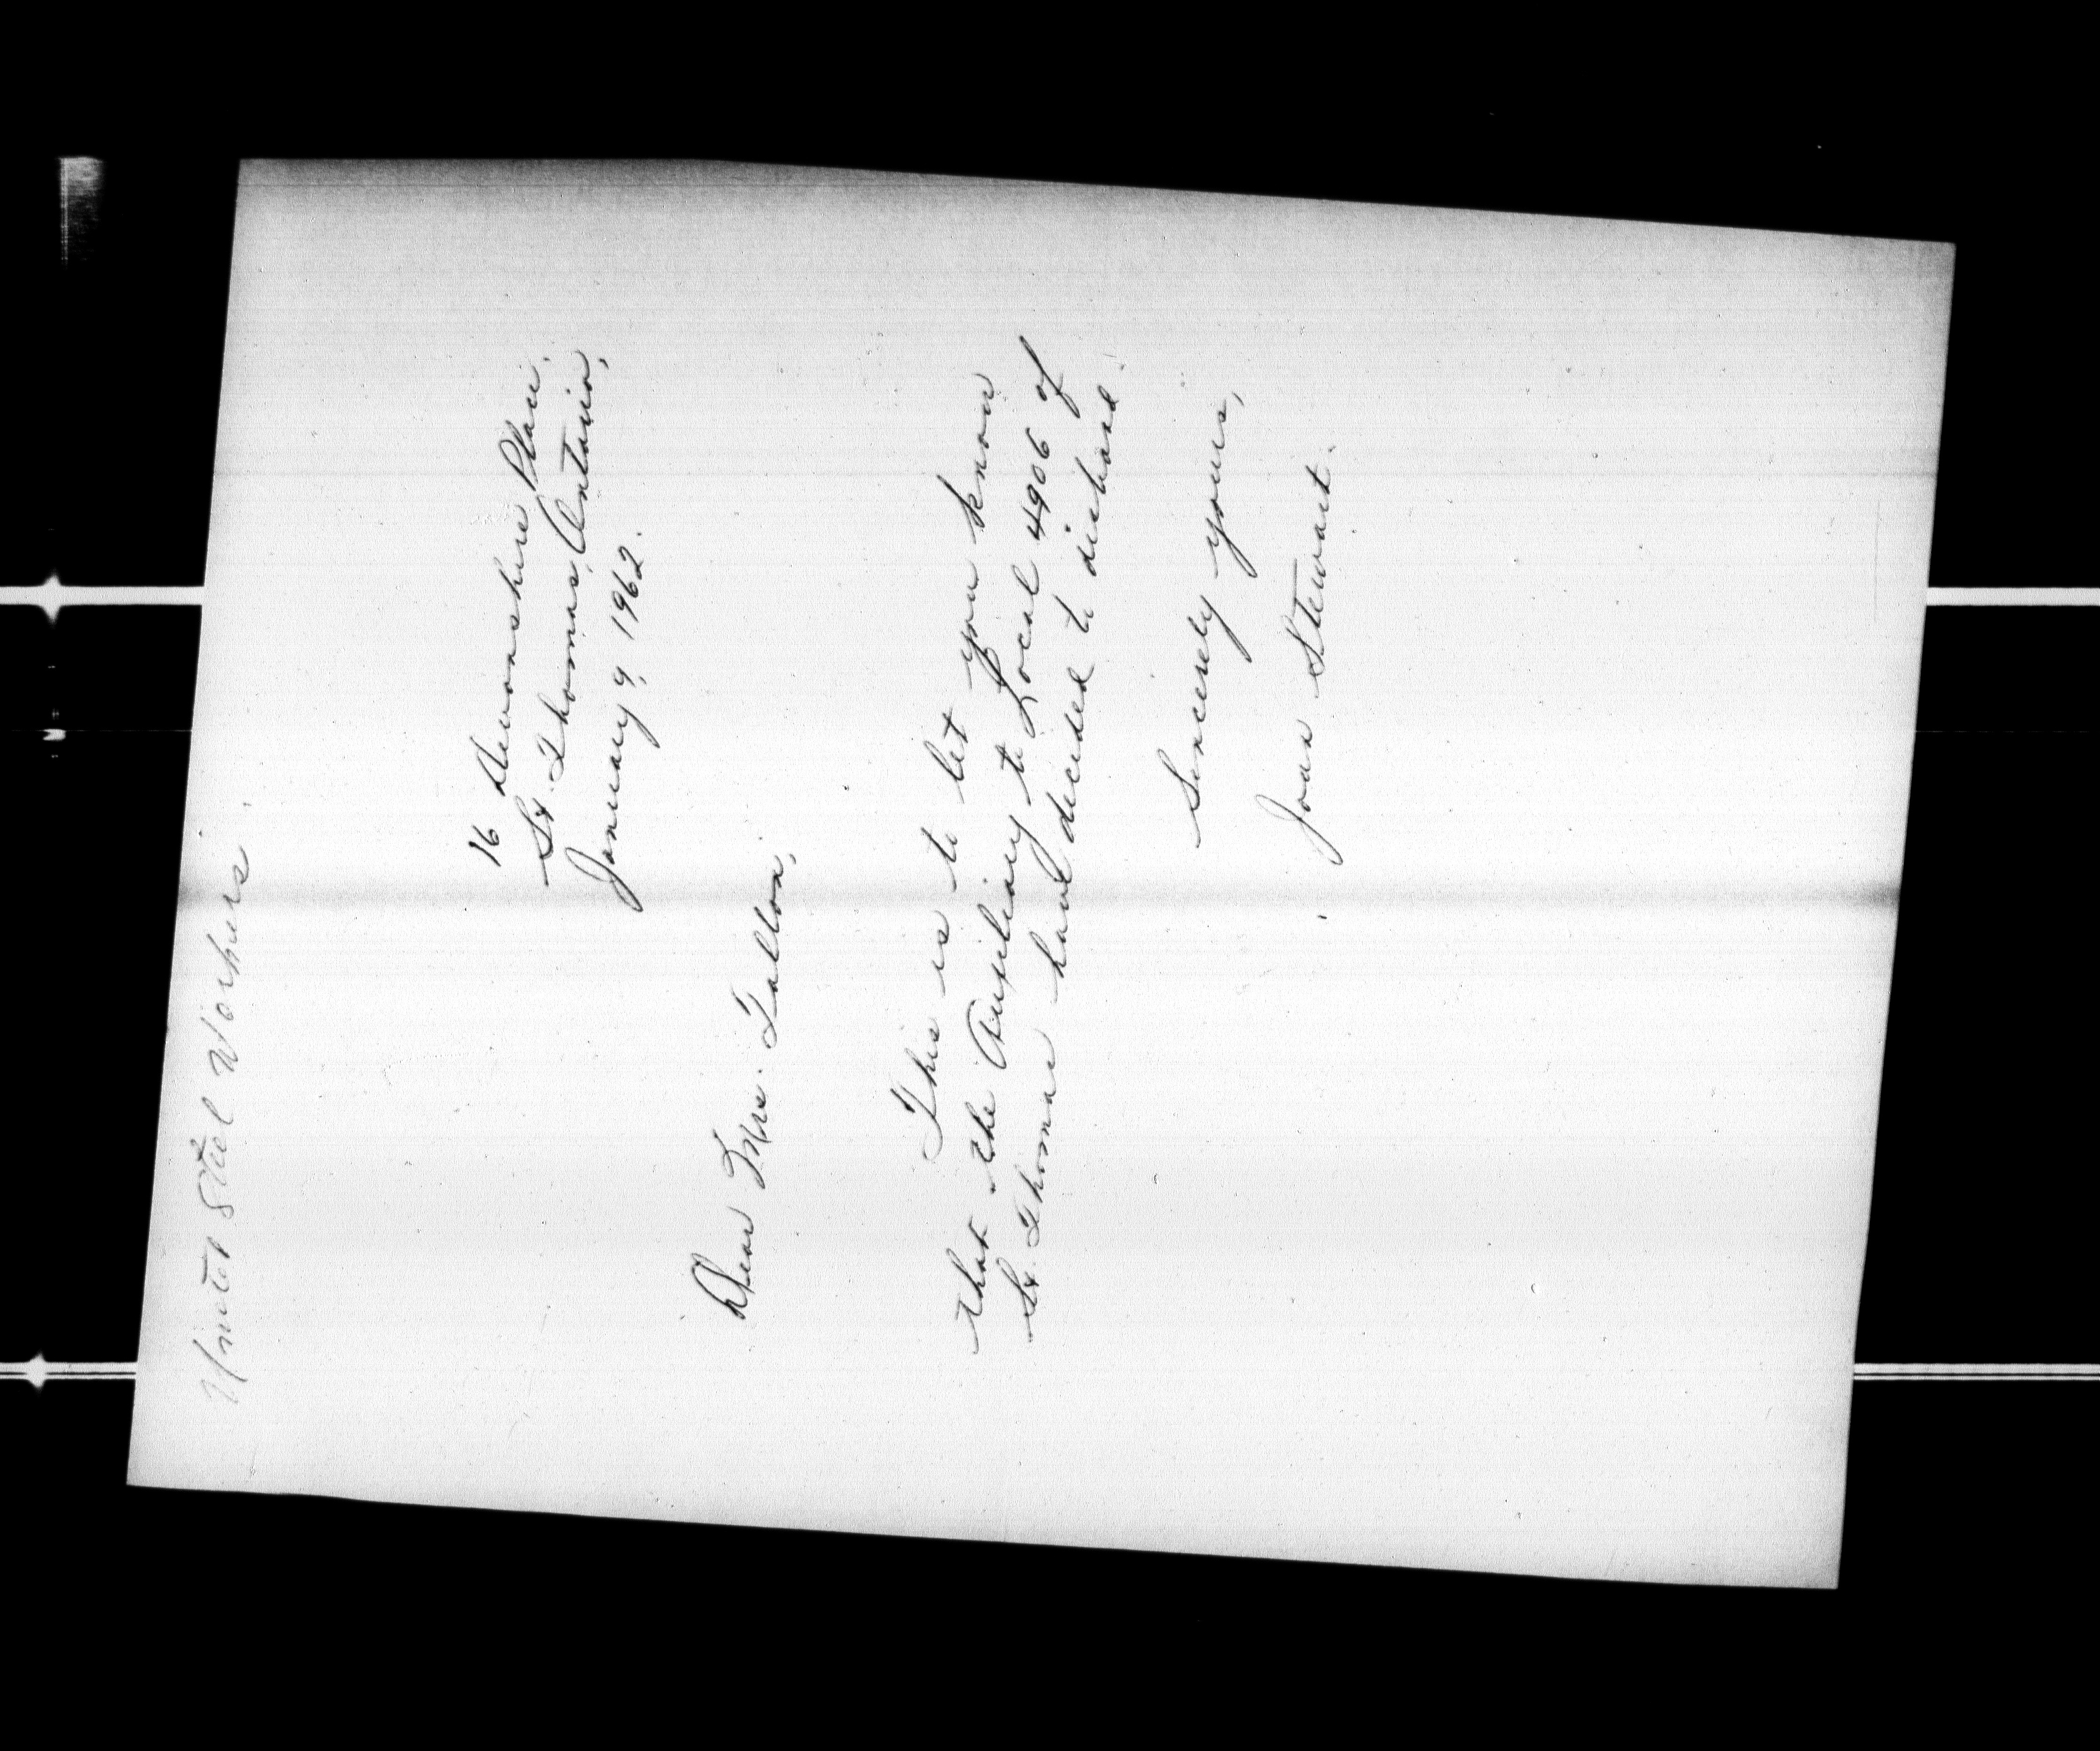 United Steel Workers.
16 Devonshire Place.
St. Thomas, Ontario,
January 9, 1962.
Dear Mrs. Tallon,
This is to let you know
that the Auxiliary to Local 4906 of
St. Thomas have decided to disband.
Sincerely yours,
Joan Stewart.